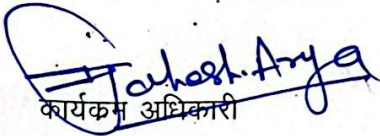 Mahesh. Arya
कार्यक्रम अधिकारी